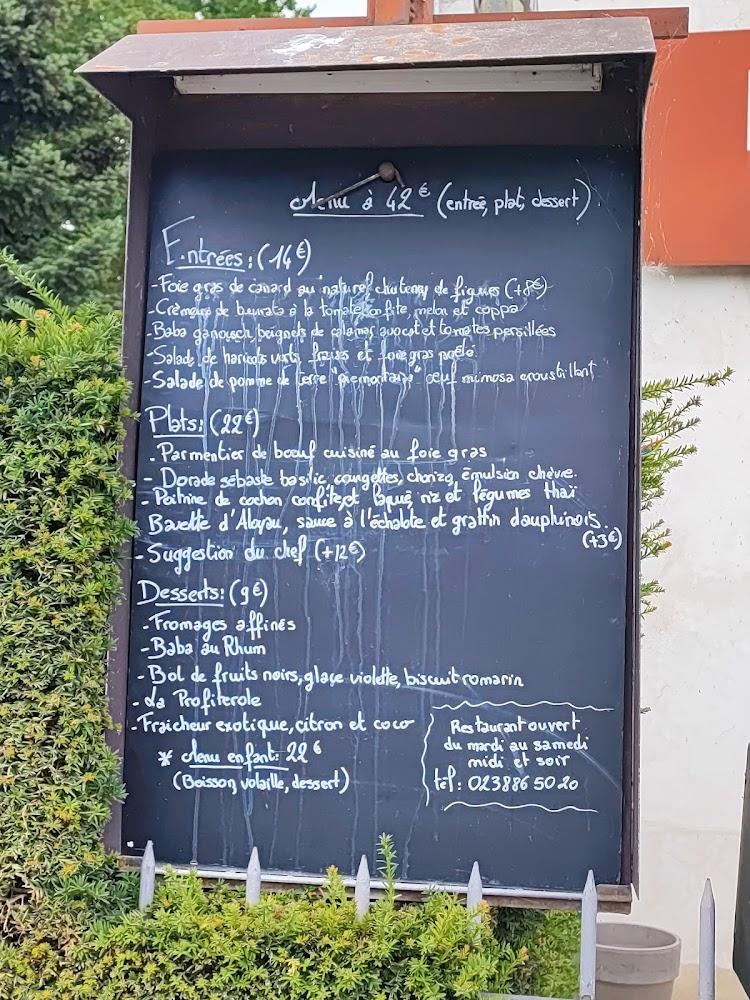 Menu à 42€ (entrée, plat, dessert)
Entrées: (14€)
- Foie gras de canard au naturel chutney de figues (+8€)
- Crémeux de burrata à la tomate confite, melon et coppa
- Baba ganousch, beignets de calamar, avocat et tomates persillées
- Salade de haricots verts, fraises et foie gras poêlé
- Salade de pomme de terre "piémontaise" œuf mimosa croustillant
Plats: (22€)
- Parmentier de bœuf cuisiné au foie gras
- Dorade sébaste basilic courgettes, chorizo, émulsion chèvre.
- Poitrine de cochon confite et laqué riz et légumes thaï
Bavette d'Aloyau, sauce à l'échalote et gratin dauphinois.
(+3€)
- Suggestion du chef (+12€)
Desserts: (9€)
- Fromages affinés
- Baba au Rhum
- Bol de fruits noirs, glace violette, biscuit romarin
- La Profiterole
- Fraicheur exotique, citron et coco
* Menu enfant: 22€
(Boisson volaille, dessert)
Restaurant ouvert
du mardi au samedi
midi et soir
tél: 0238865020